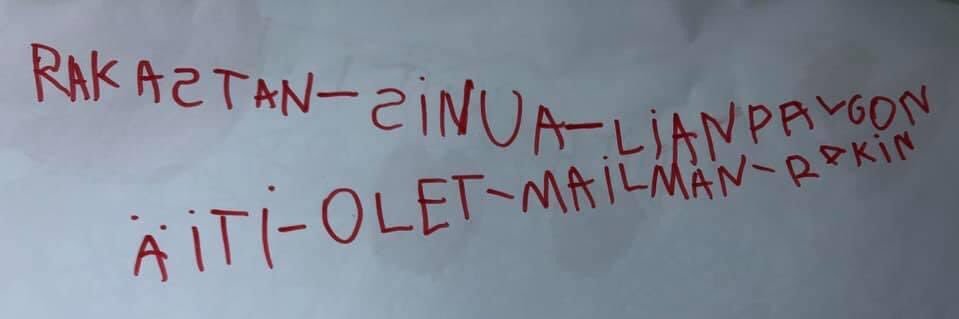 RAKASTAN-SINUA-LIANPALGON
ÄITI-OLET-MAILMAN-RAKIN